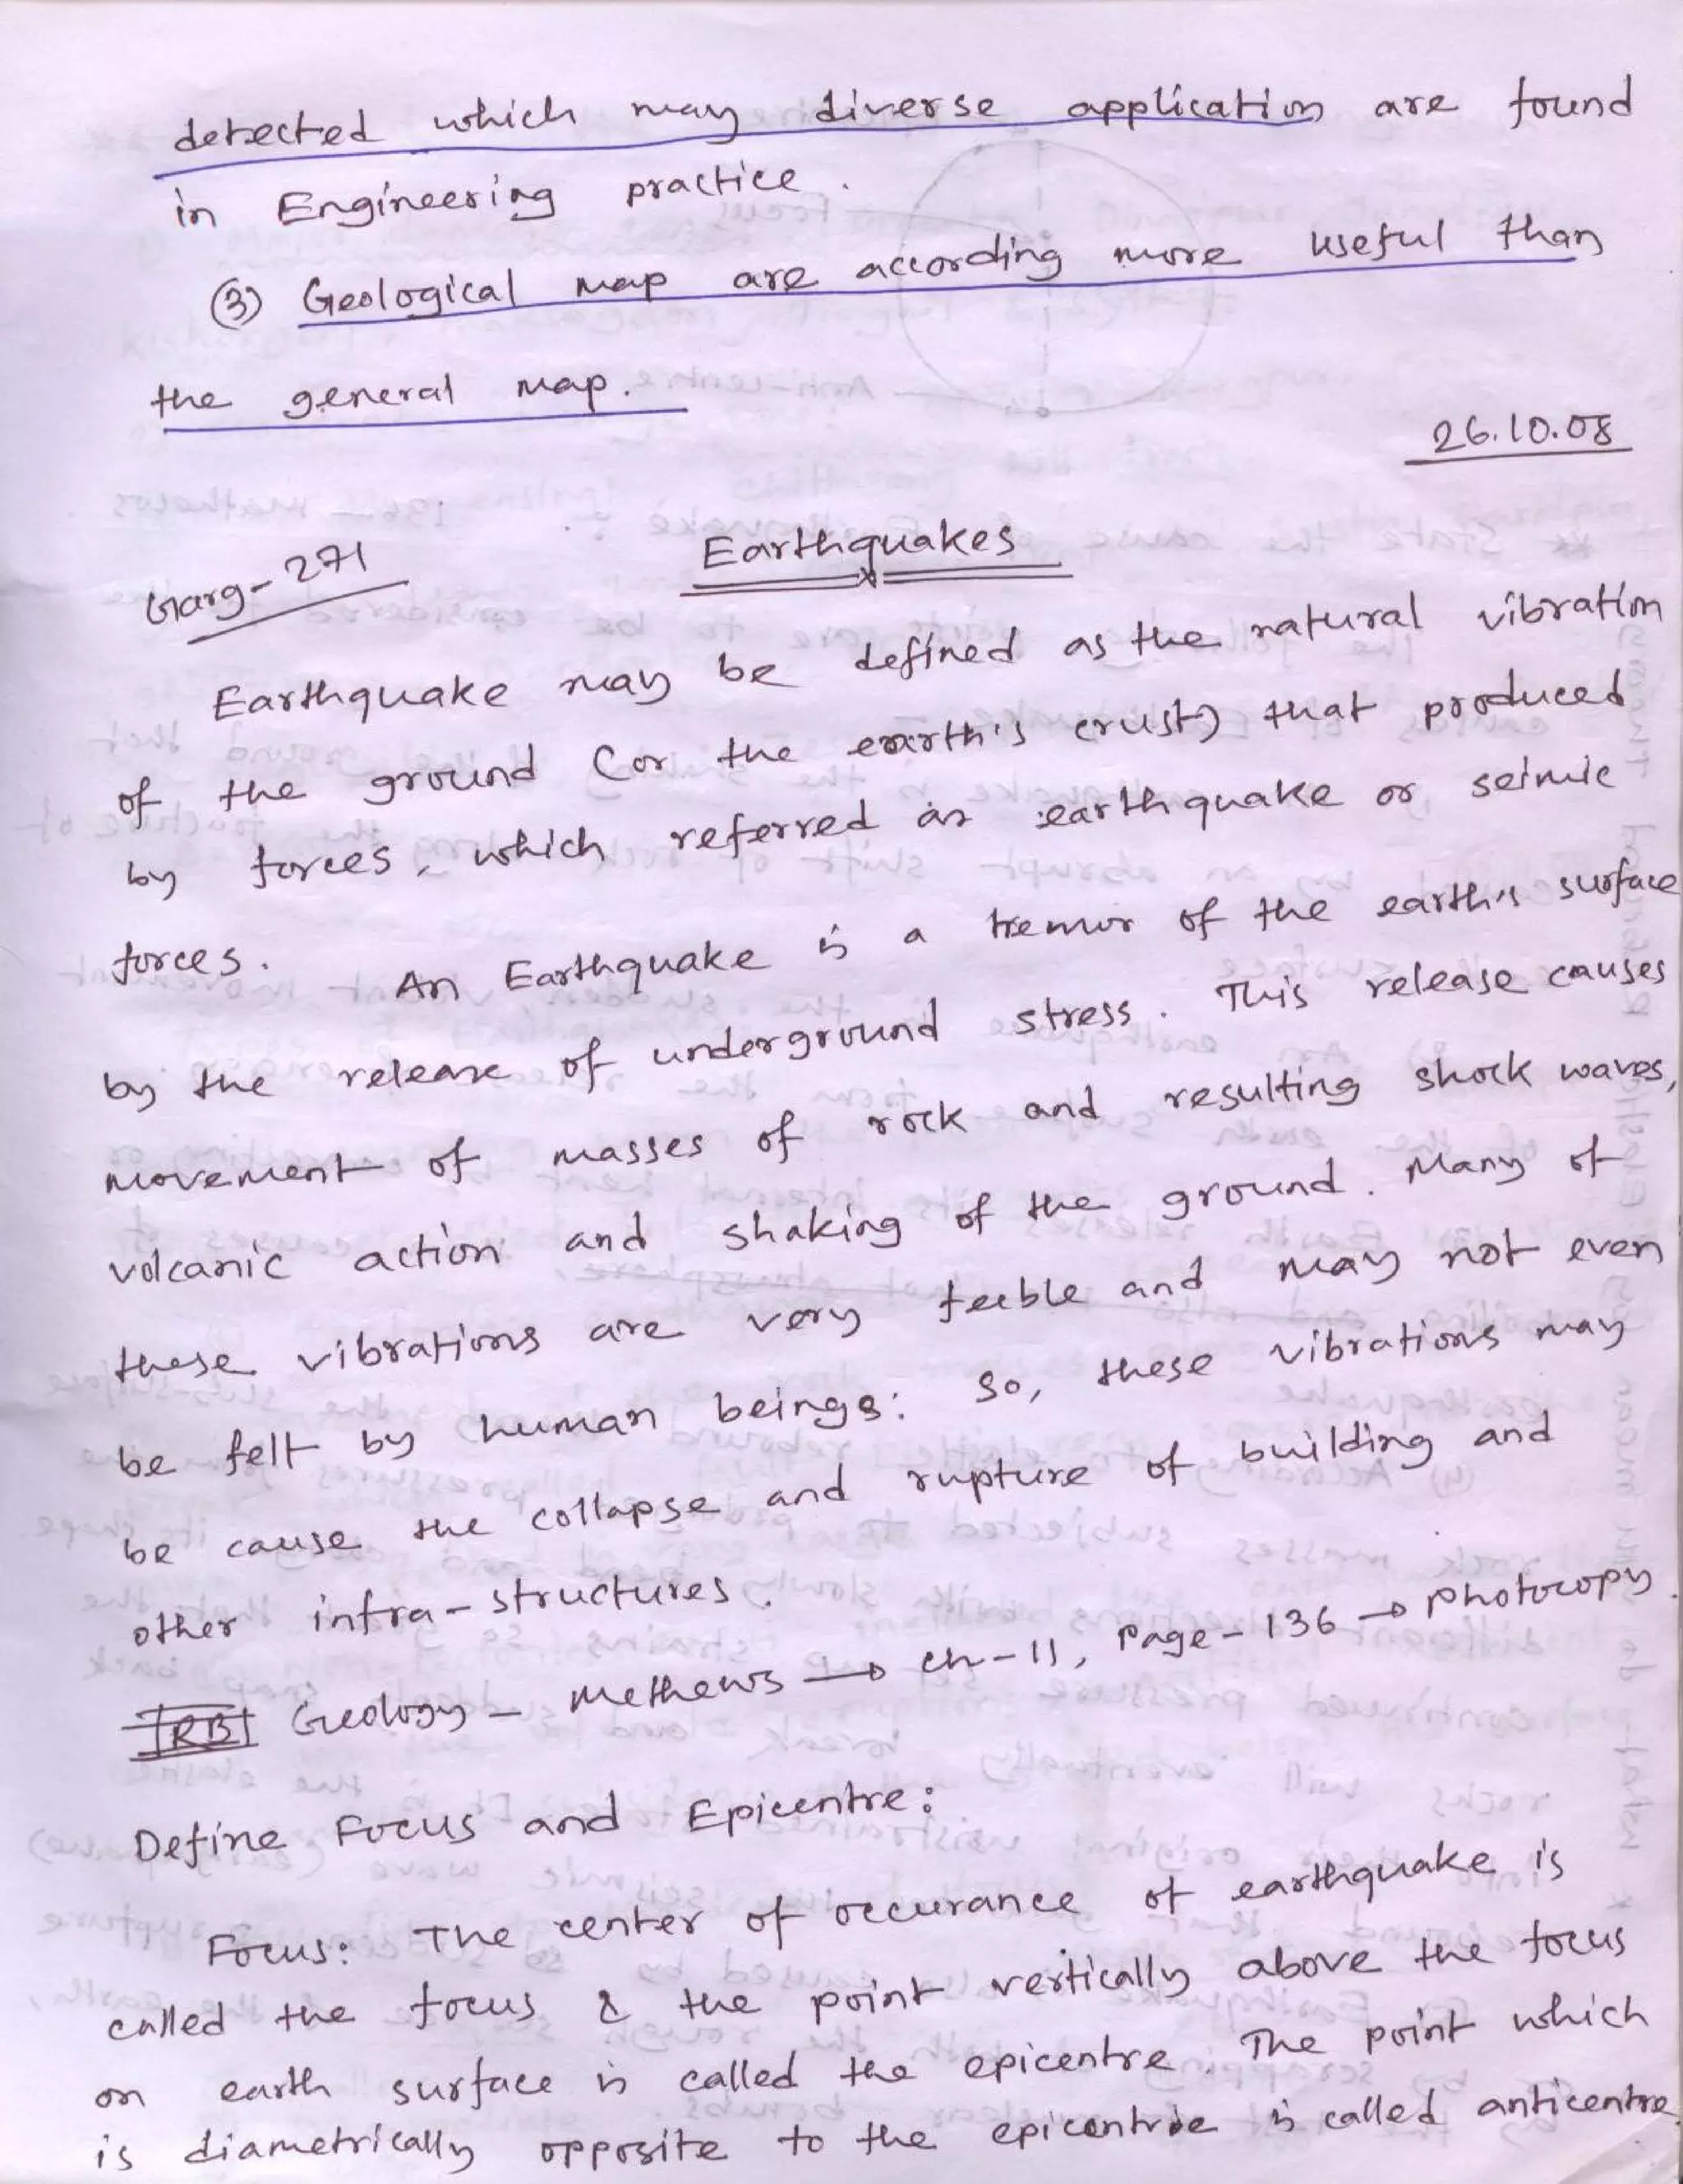 detected which may diverse application are found
in Engineering practice.
③ Geological map are according more useful than
the general map.
26.10.08
Garg-271
Earthquakes
Earthquake may be defined as the natural vibration
of the ground (or the earth's crust) that produced
by forces, which referred as earthquake or seimic
forces. An Earthquake is a tremor of the earth's surface
by the release of underground stress. This release causes
movement of masses of rock and resulting shock waves,
volcanic action and shaking of the ground. Many of
these vibrations are very feeble and may not even
be felt by human beings: So, these vibrations may
be cause the collapse and rupture of building and
other infra-structures.
TRB Geology - Methews → ch-11, Page-136 → photocopy.
Define Focus and Epicentre:
Focus: The center of occurance of earthquake is
called the focus & the point vertically above the focus
on earth surface is called the epicentre. The point which
is diametrically opposite to the epicentre is called anticentre